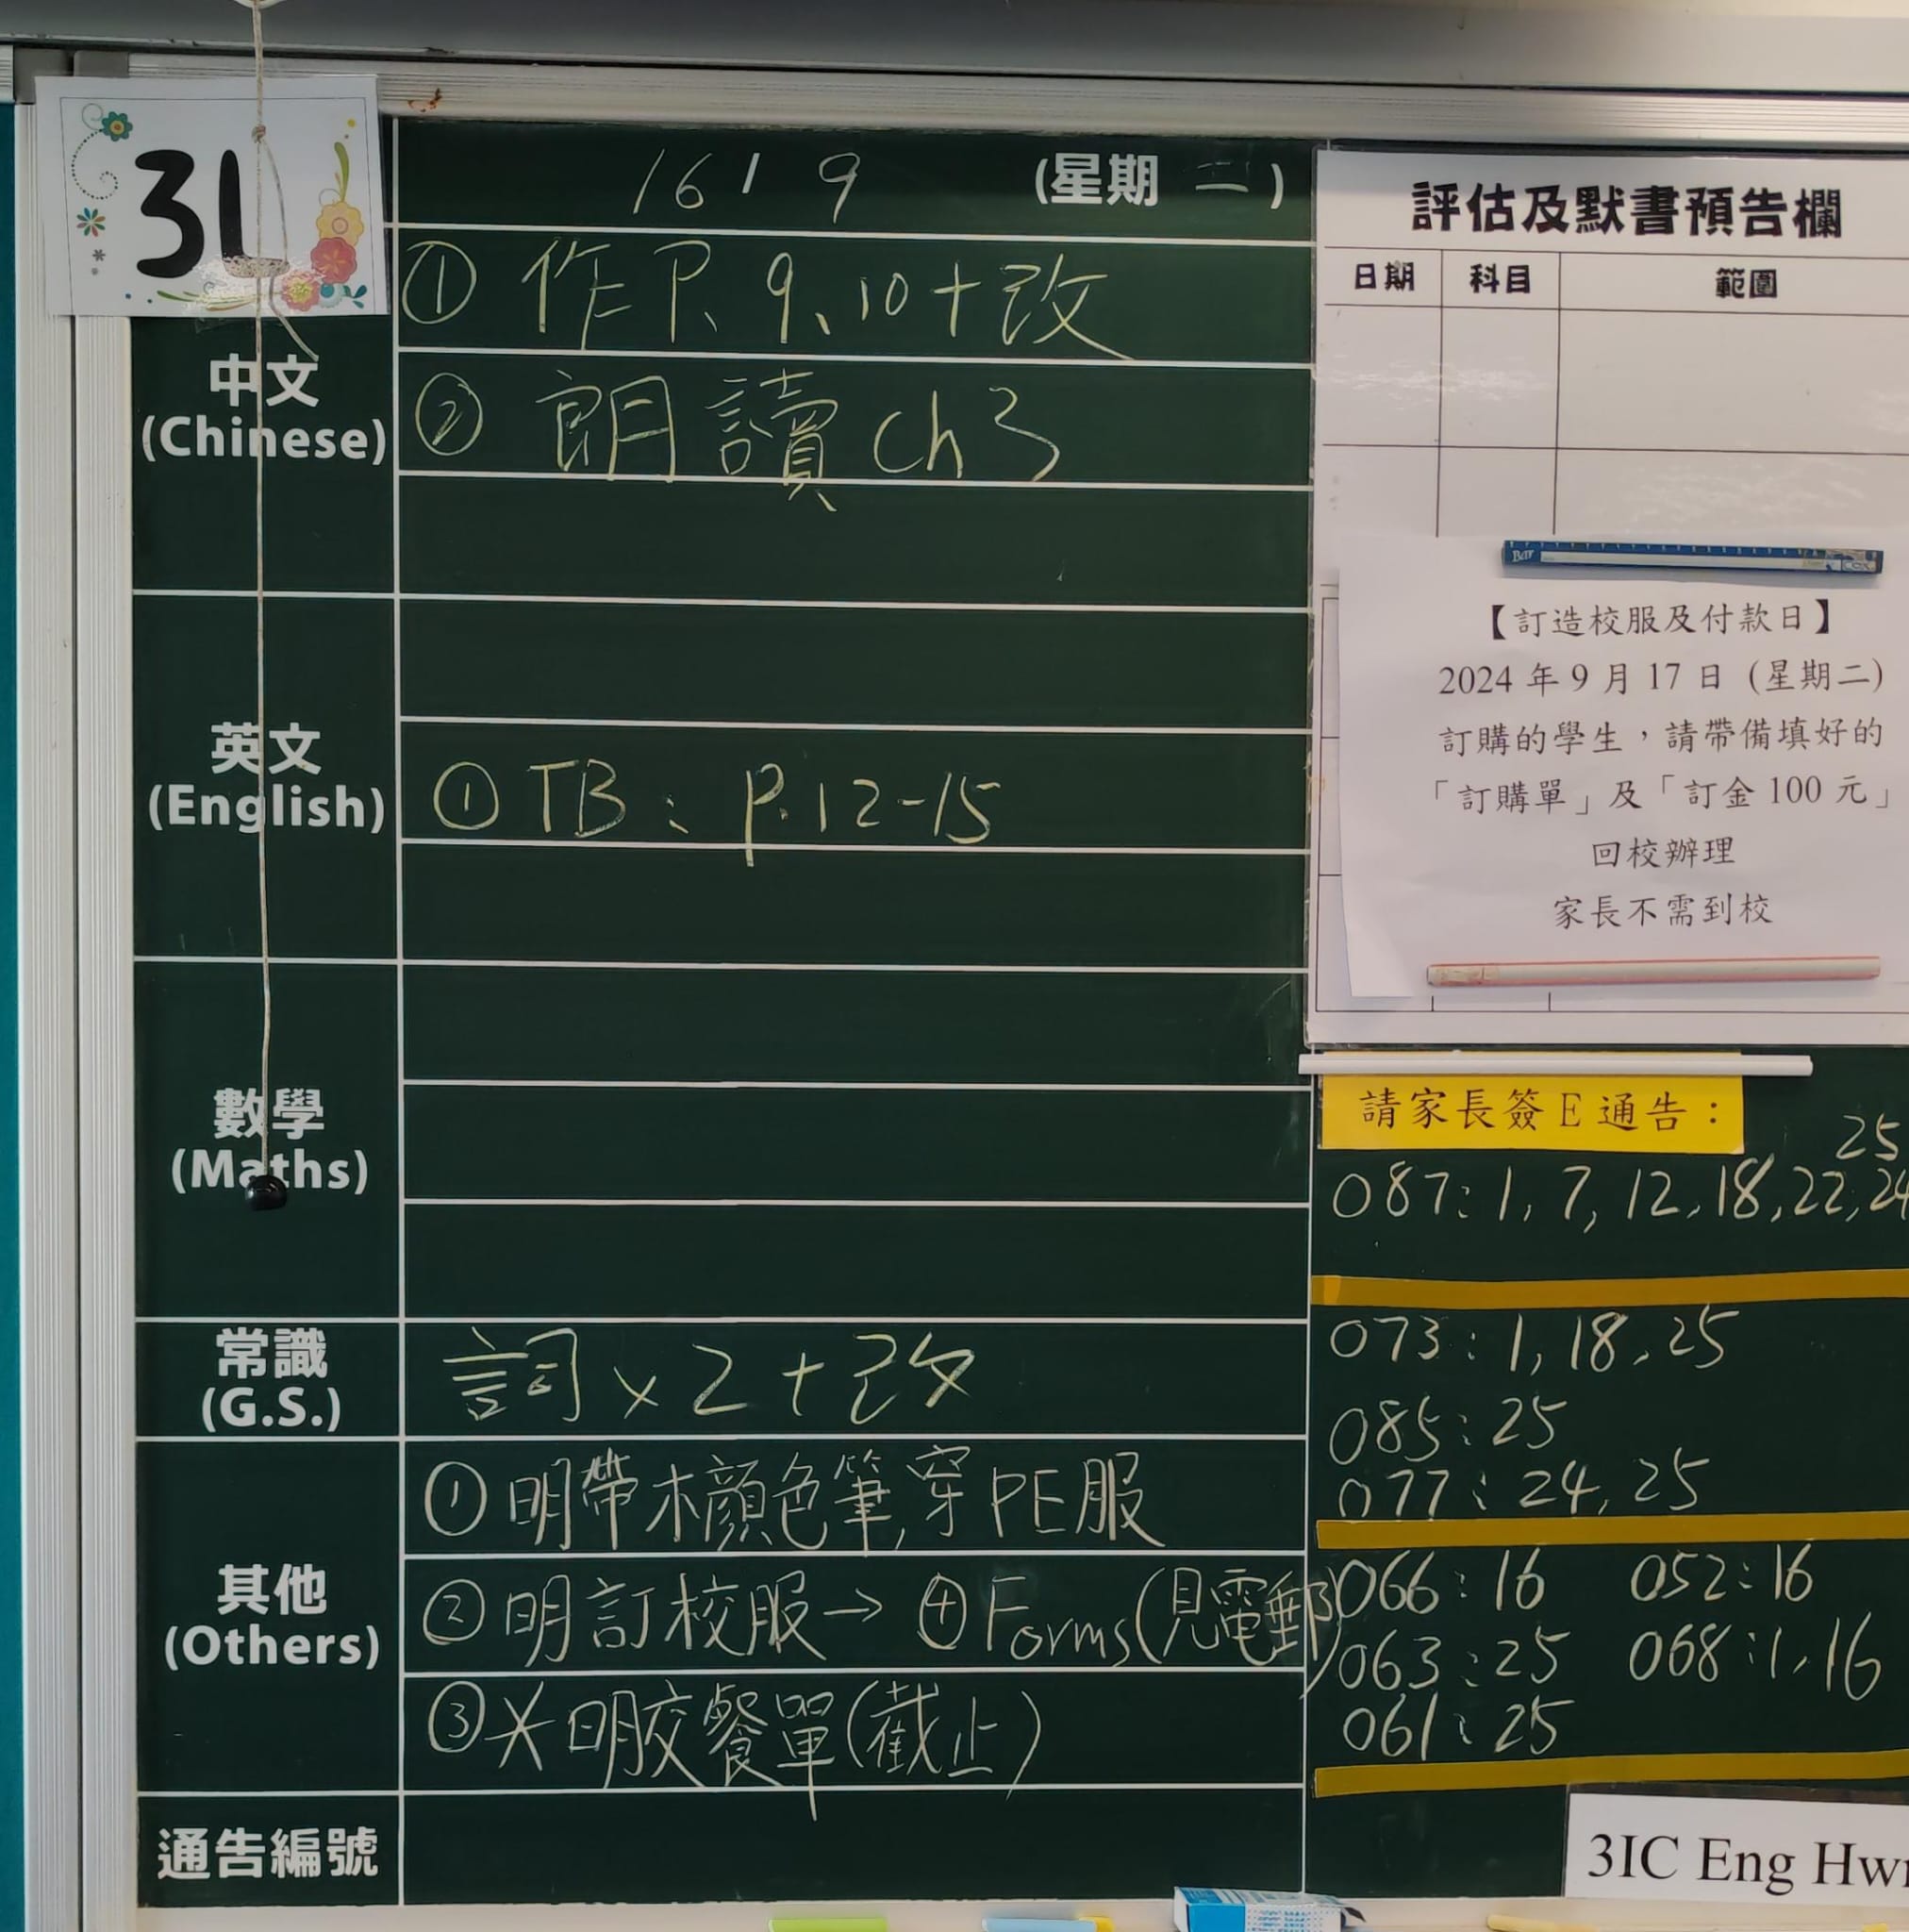 3L
16 / 9 (星期 二 )
中文
(Chinese)
① 作 P. 9、10 + 改
② 朗讀 Ch 3
英文
(English)
① TB : p. 12-15
數學
(Maths)
常識
(G.S.)
詞 x 2 + 改
其他
(Others)
① 明帶木顏色筆, 穿 PE 服
② 明訂校服 → ④ Forms (見電郵)
③ 明交餐單 (截止)
通告編號
評估及默書預告欄
日期 科目 範圍
【訂造校服及付款日】
2024 年 9 月 17 日 (星期二)
訂購的學生，請帶備填好的
「訂購單」及「訂金 100 元」
回校辦理
家長不需到校
請家長簽 E 通告：
25
087 : 1, 7, 12, 18, 22, 24
073 : 1, 18, 25
085 : 25
077 : 24, 25
066 : 16 052 : 16
063 : 25 068 : 1, 16
061 : 25
3IC Eng